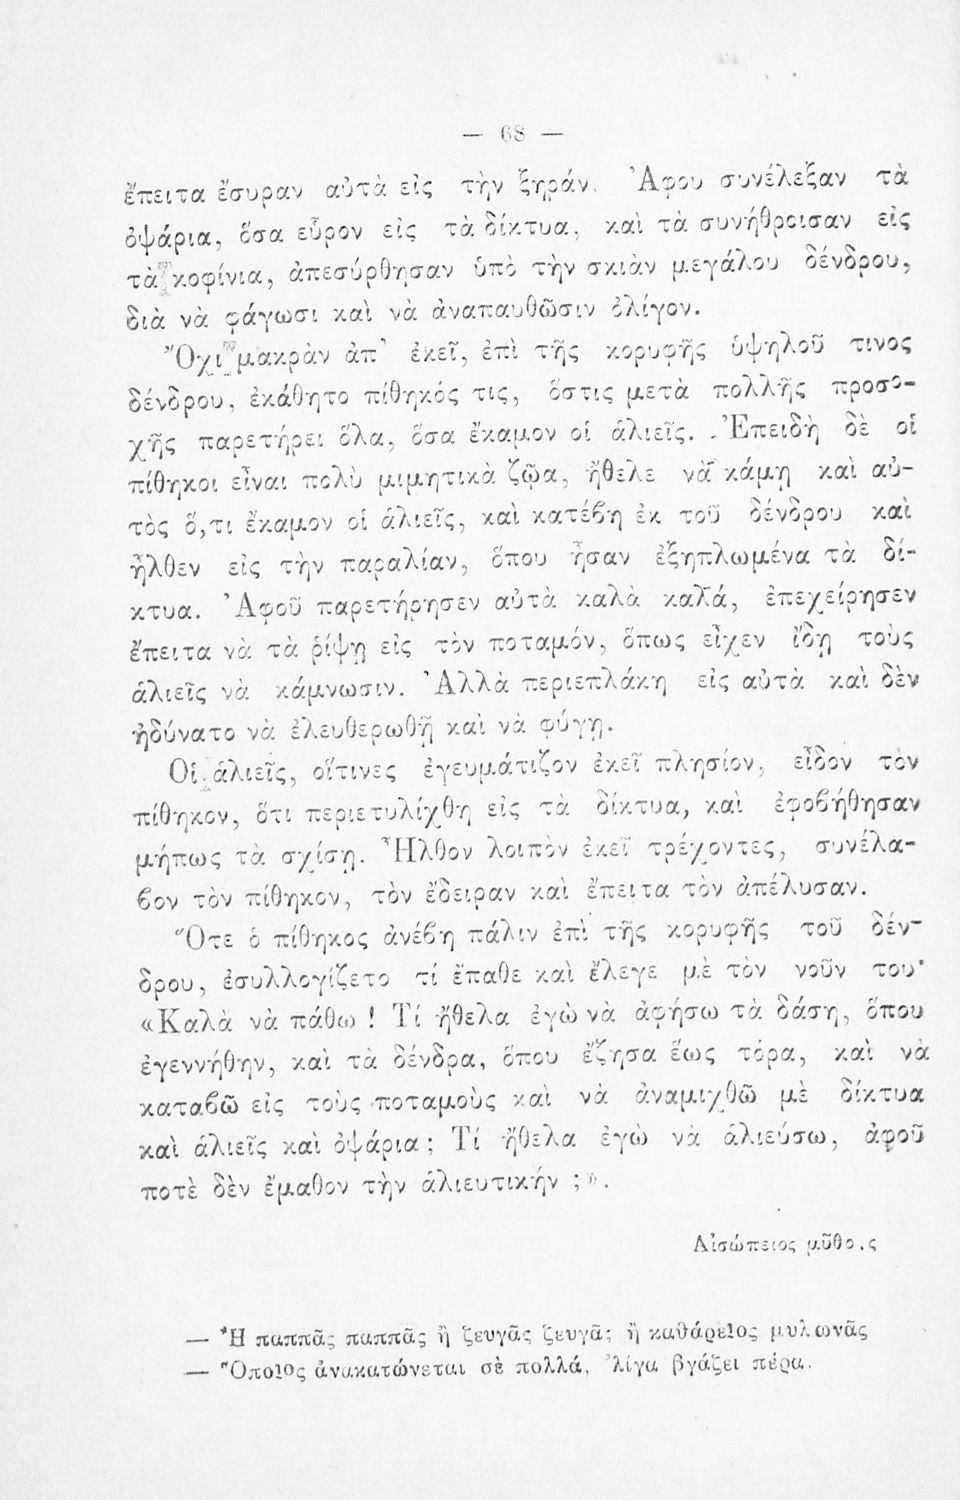 — 68 —
ἔπειτα ἔσυραν αὐτὰ εἰς τὴν ξηράν. Ἀφου συνέλεξαν τὰ
ὀψάρια, ὅσα εὗρον εἰς τὰ δίκτυα, καὶ τὰ συνήθροισαν εἰς
τὰ κοφίνια, ἀπεσύρθησαν ὑπὸ τὴν σκιὰν μεγάλου δένδρου,
διὰ νὰ φάγωσι καὶ νὰ ἀναπαυθῶσιν ὀλίγον.
Ὄχι μακρὰν ἀπ’ ἐκεῖ, ἐπὶ τῆς κορυφῆς ὑψηλοῦ τινος
δένδρου, ἐκάθητο πίθηκός τις, ὅστις μετὰ πολλῆς προσο-
χῆς παρετήρει ὅλα, ὅσα ἔκαμον οἱ ἁλιεῖς. Ἐπειδὴ δὲ οἱ
πίθηκοι εἶναι πολὺ μιμητικὰ ζῷα, ἤθελε νὰ κάμῃ καὶ αὐ-
τὸς ὅ,τι ἔκαμον οἱ ἁλιεῖς, καὶ κατέβη ἐκ τοῦ δένδρου καὶ
ἦλθεν εἰς τὴν παραλίαν, ὅπου ἦσαν ἐξηπλωμένα τὰ δί-
κτυα. Ἀφοῦ παρετήρησεν αὐτὰ καλὰ καλά, ἐπεχείρησεν
ἔπειτα νὰ τὰ ῥίψῃ εἰς τὸν ποταμόν, ὅπως εἶχεν ἴδῃ τοὺς
ἁλιεῖς νὰ κάμνωσιν. Ἀλλὰ περιεπλάκη εἰς αὐτὰ καὶ δὲν
ἠδύνατο νὰ ἐλευθερωθῇ καὶ νὰ φύγῃ.
Οἱ ἁλιεῖς, οἵτινες ἐγευμάτιζον ἐκεῖ πλησίον, εἶδον τὸν
πίθηκον, ὅτι περιετυλίχθη εἰς τὰ δίκτυα, καὶ ἐφοβήθησαν
μήπως τὰ σχίσῃ. Ἦλθον λοιπὸν ἐκεῖ τρέχοντες, συνέλα-
βον τὸν πίθηκον, τὸν ἔδειραν καὶ ἔπειτα τὸν ἀπέλυσαν.
Ὅτε ὁ πίθηκος ἀνέβη πάλιν ἐπὶ τῆς κορυφῆς τοῦ δέν-
δρου, ἐσυλλογίζετο τί ἔπαθε καὶ ἔλεγε μὲ τὸν νοῦν του·
«Καλὰ νὰ πάθω! Τί ἤθελα ἐγὼ νὰ ἀφήσω τὰ δάση, ὅπου
ἐγεννήθην, καὶ τὰ δένδρα, ὅπου ἔζησα ἕως τόρα, καὶ νὰ
καταβῶ εἰς τοὺς ποταμοὺς καὶ νὰ ἀναμιχθῶ μὲ δίκτυα
καὶ ἁλιεῖς καὶ ὀψάρια; Τί ἤθελα ἐγὼ νὰ ἁλιεύσω, ἀφοῦ
ποτὲ δὲν ἔμαθον τὴν ἁλιευτικήν ;».
Αἰσώπειος μῦθο.ς
— Ἢ παππᾶς παππᾶς ἢ ζευγᾶς ζευγᾶς ἢ καθάρειος μυλωνᾶς
— Ὅποιος ἀνακατώνεται σὲ πολλά, λίγα βγάζει πέρα.